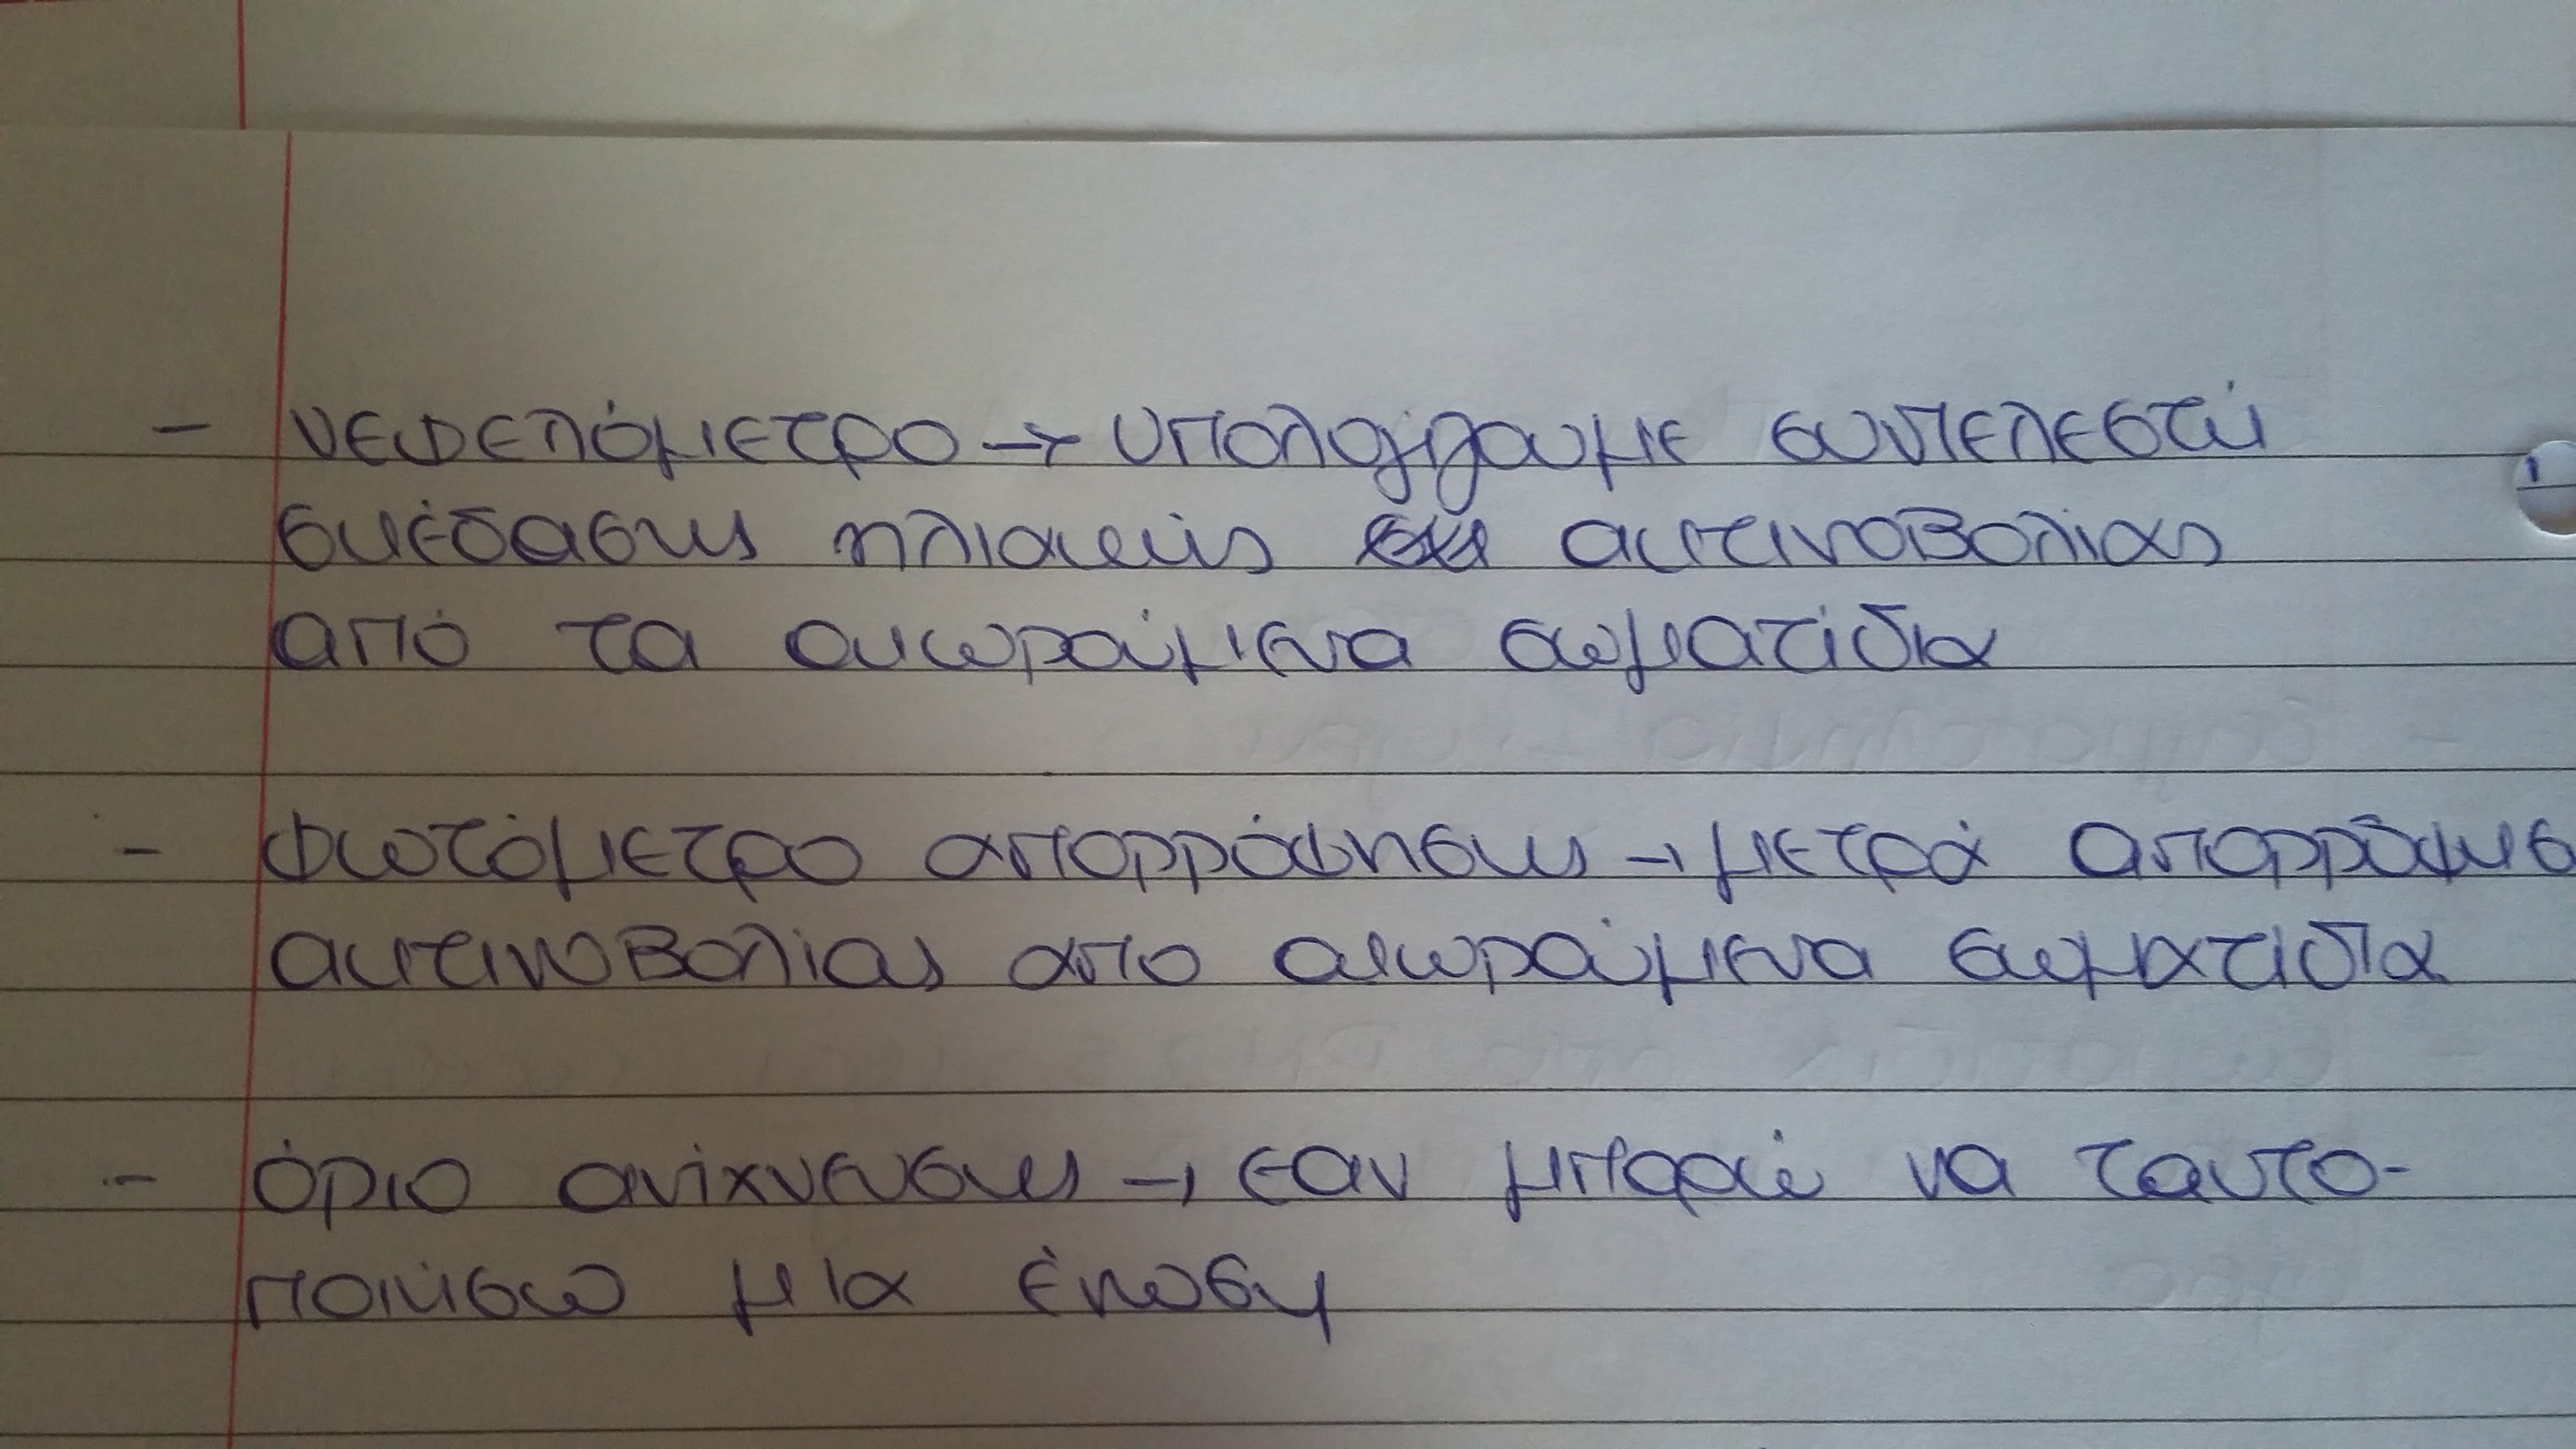 - νεφελόμετρο → υπολογίζουμε συντελεστή
σκέδασης ηλιακής ακτινοβολίας
από τα αιωρούμενα σωματίδια
- Φωτόμετρο απορρόφησης → μετρά απορρόφησ
ακτινοβολίας απο αιωρούμενα σωματίδια
- όριο ανίχνευσης → εαν μπορώ να ταυτο-
ποιήσω μια ένωση